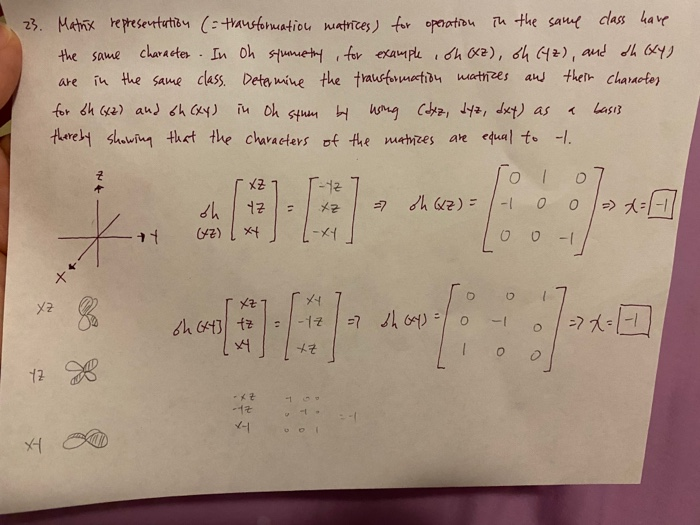 23. Matrix representation (= transformation matrices) for operation in the same class have
the same character. In Oh symmetry, for example, σh (xz), σh (yz), and σh (xy)
are in the same class. Determine the transformation matrices and their character
for σh (xz) and σh (xy) in Oh symm by using (dxz, dyz, dxy) as a basis
thereby showing that the characters of the matrices are equal to -1.
z
Y
X
σh (xz) [xz yz xy] = [-yz xz -xy] ⇒ σh (xz) = [0 1 0 -1 0 0 0 0 -1] ⇒ χ = -1
xz
σh (xy) [xz yz xy] = [xy -yz xz] ⇒ σh (xy) = [0 0 1 0 -1 0 1 0 0] ⇒ χ = -1
yz
-xz
-yz
xy
= -1
xy